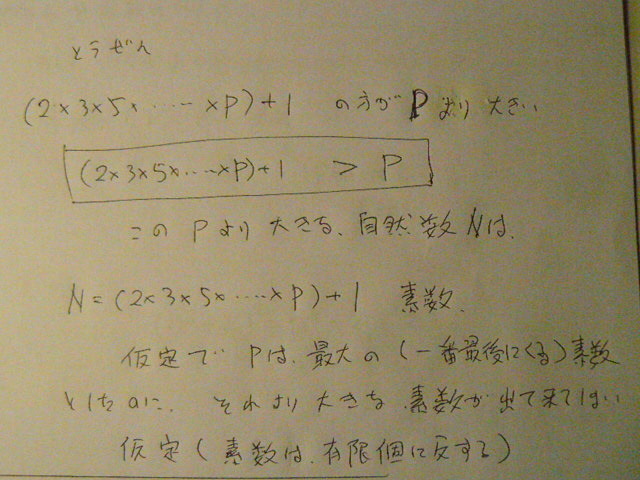 とうぜん
(2×3×5×‥‥×P)+1 の方がPより大きい
(2×3×5×‥‥×P)+1 > P
このPより大きな、自然数Nは、
N=(2×3×5×‥‥×P)+1 素数、
仮定でPは、最大の(一番最後にくる)素数
としたのに、それより大きな素数が出て来ては
仮定(素数は、有限個に反する)